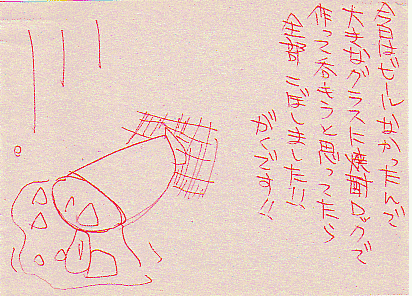 今日はビールなかったんで
大きなグラスに焼酎ロックで
作って呑もうと思ってたら
全部こぼしました!!
がくです!!